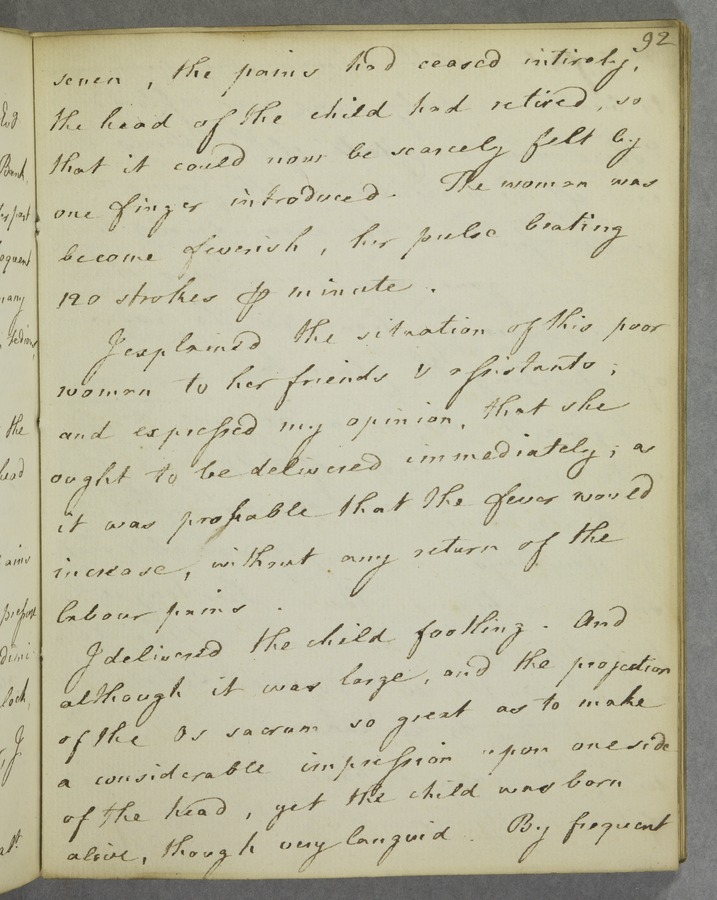 92
seven, the pains had ceased intirely,
the head of the child had retired, so
that it could now be scarcely felt by
one finger introduced. The woman was
become feverish, her pulse beating
120 strokes ⅌ minute.
I explained the situation of this poor
woman to her friends & assistants;
and expressed my opinion, that she
ought to be delivered immediately; as
it was probable that the fever would
increase, without any return of the
labour pains.
I delivered the child footling. And
although it was large, and the projection
of the Os sacrum so great as to make
a considerable impression upon one side
of the head, yet the child was born
alive, though very languid. By frequent